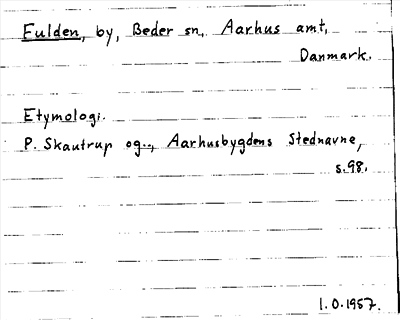 Fulden, by, Beder sn., Aarhus amt,
Danmark.
Etymologi.
P. Skautrup og.., Aarhusbygdens Stednavne,
s.98.
1.0.1957.